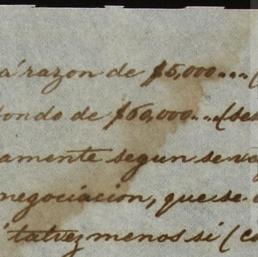 á razon de $5,000... (
fondo de $60,000... (ses
amente segun se va
negociacion, que se
talvez menos si (c